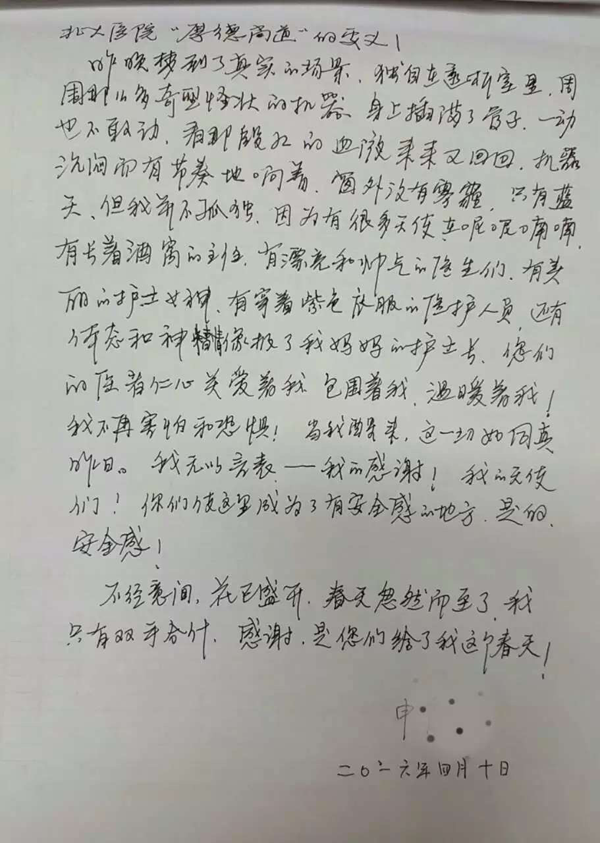 北大医院“厚德尚道”的要义!
昨晚梦到了真实的场景,独自在透析室里,周
围那么多奇型怪状的机器,身上插满了管子,一动
也不敢动,看那殷红的血液来来又回回,机器
沉闷而有节奏地响着,窗外没有雾霾,只有蓝
天,但我并不孤独,因为有很多天使在呢呢喃喃,
有长着酒窝的主任,有漂亮和帅气的医生们,有美
丽的护士女神,有穿着紫色衣服的医护人员,还有
体态和神情像极了我妈妈的护士长,您们
的医者仁心关爱着我,包围着我,温暖着我!
我不再害怕和恐惧!当我醒来,这一切如同真
昨日。我无以言表——我的感谢!我的天使
们!你们使这里成为了有安全感的地方,是的,
安全感!
不经意间,花已盛开,春天忽然而至了,我
只有双手合什,感谢,是您们给了我这个春天!
申
二〇一六年四月十日